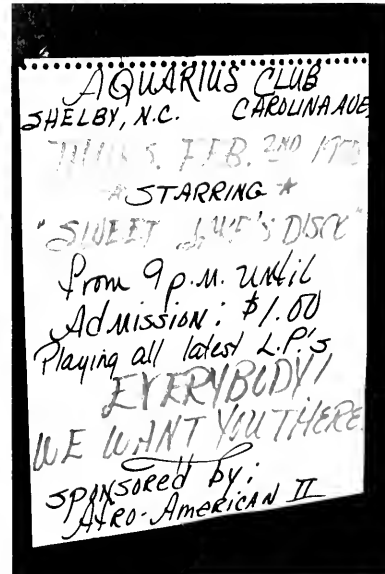 AQUARIUS CLUB
SHELBY, N.C. CAROLINA AVE.
THURS. FEB. 2ND
★ STARRING ★
"SWEET DISCO"
from 9 p.m. until
Admission: $1.00
Playing all latest L.P.'s
EVERYBODY!
WE WANT YOU THERE.
SPONSORED by:
AFRO-AMERICAN II